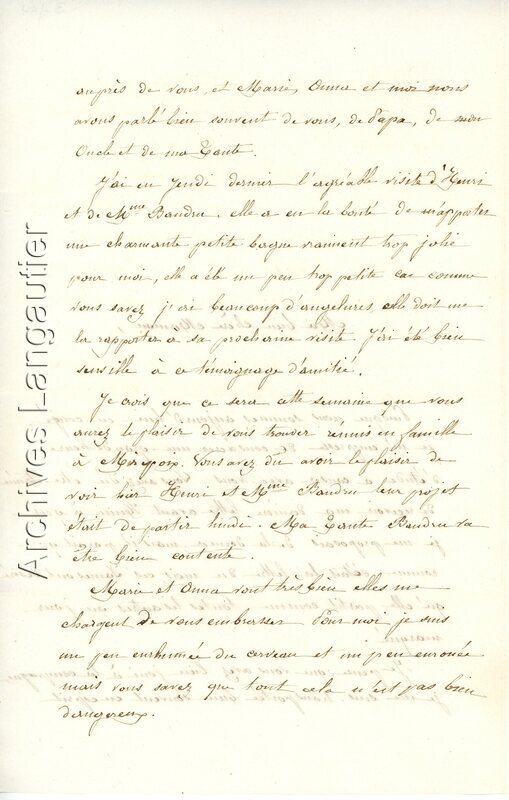 auprès de vous, et Marie, Anna et moi nous
avons parlé bien souvent de vous, de Papa, de mon
Oncle et de ma Tante.
J'ai eu Jeudi dernier l'agréable visite d'Henri
et de Mme Baudru. elle a eu la bonté de m'apporter
une charmante petite bague vraiment trop jolie
pour moi, elle a été un peu trop petite car comme
vous savez j'ai beaucoup d'angelures, elle doit me
la rapporter a sa prochaine visite. J'ai été bien
sensible à ce témoignage d'amitié.
Je crois que ce sera cette semaine que vous
aurez le plaisir de vous trouver réunis en famille
à Mirepoix. Vous avez dû avoir le plaisir de
voir hier Henri et Mme Baudru leur projet
était de partir lundi. Ma Tante Baudru va
être bien contente.
Marie et Anna vont très bien elles me
chargent de vous embrasser Pour moi je suis
un peu enrhumée du cerveau et un peu enrouée
mais vous savez que tout cela n'est pas bien
dangereux.
Archives Langautier